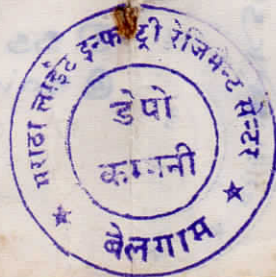 मराठा लाईट इन्फन्ट्री रेजिमेन्ट सेन्टर
डेपो
कम्पनी
★ बेलगाम ★